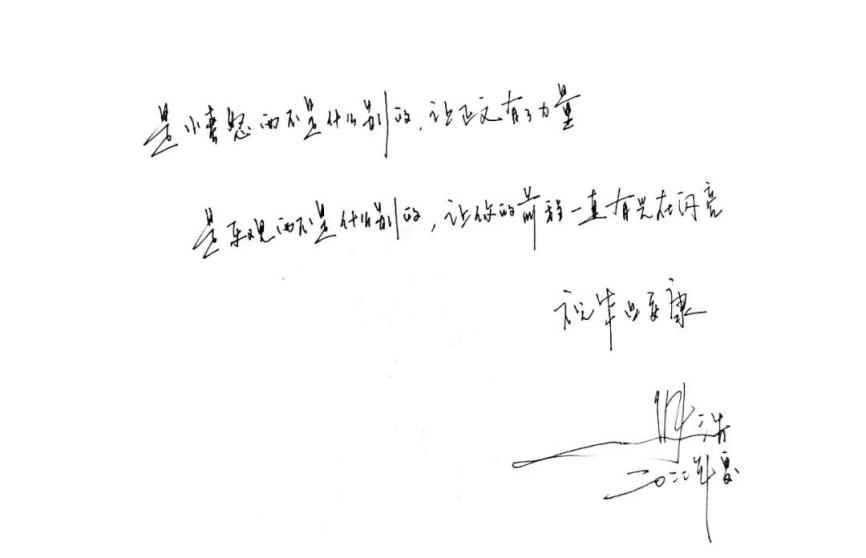 是小愤怒而不是什么别的，让正文有了力量
是乐观而不是什么别的，让你的前程一直有光在闪亮
祝毕业安康
二〇二二年夏